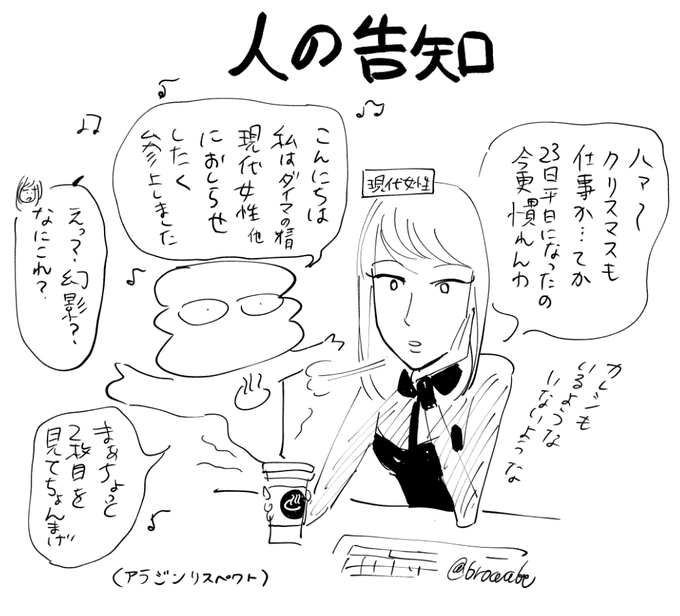 人の告知
ハァ〜
クリスマスも
仕事か…てか
23日平日になったの
今更慣れんわ
現代女性
カレシも
いるような
いないような
こんにちは
私はダイマの精
現代女性他
におしらせ
したく
参上しました
えっ?幻影?
なにこれ?
まぁちょっと
2枚目を
見てちょんまげ
(アラジンリスペクト)